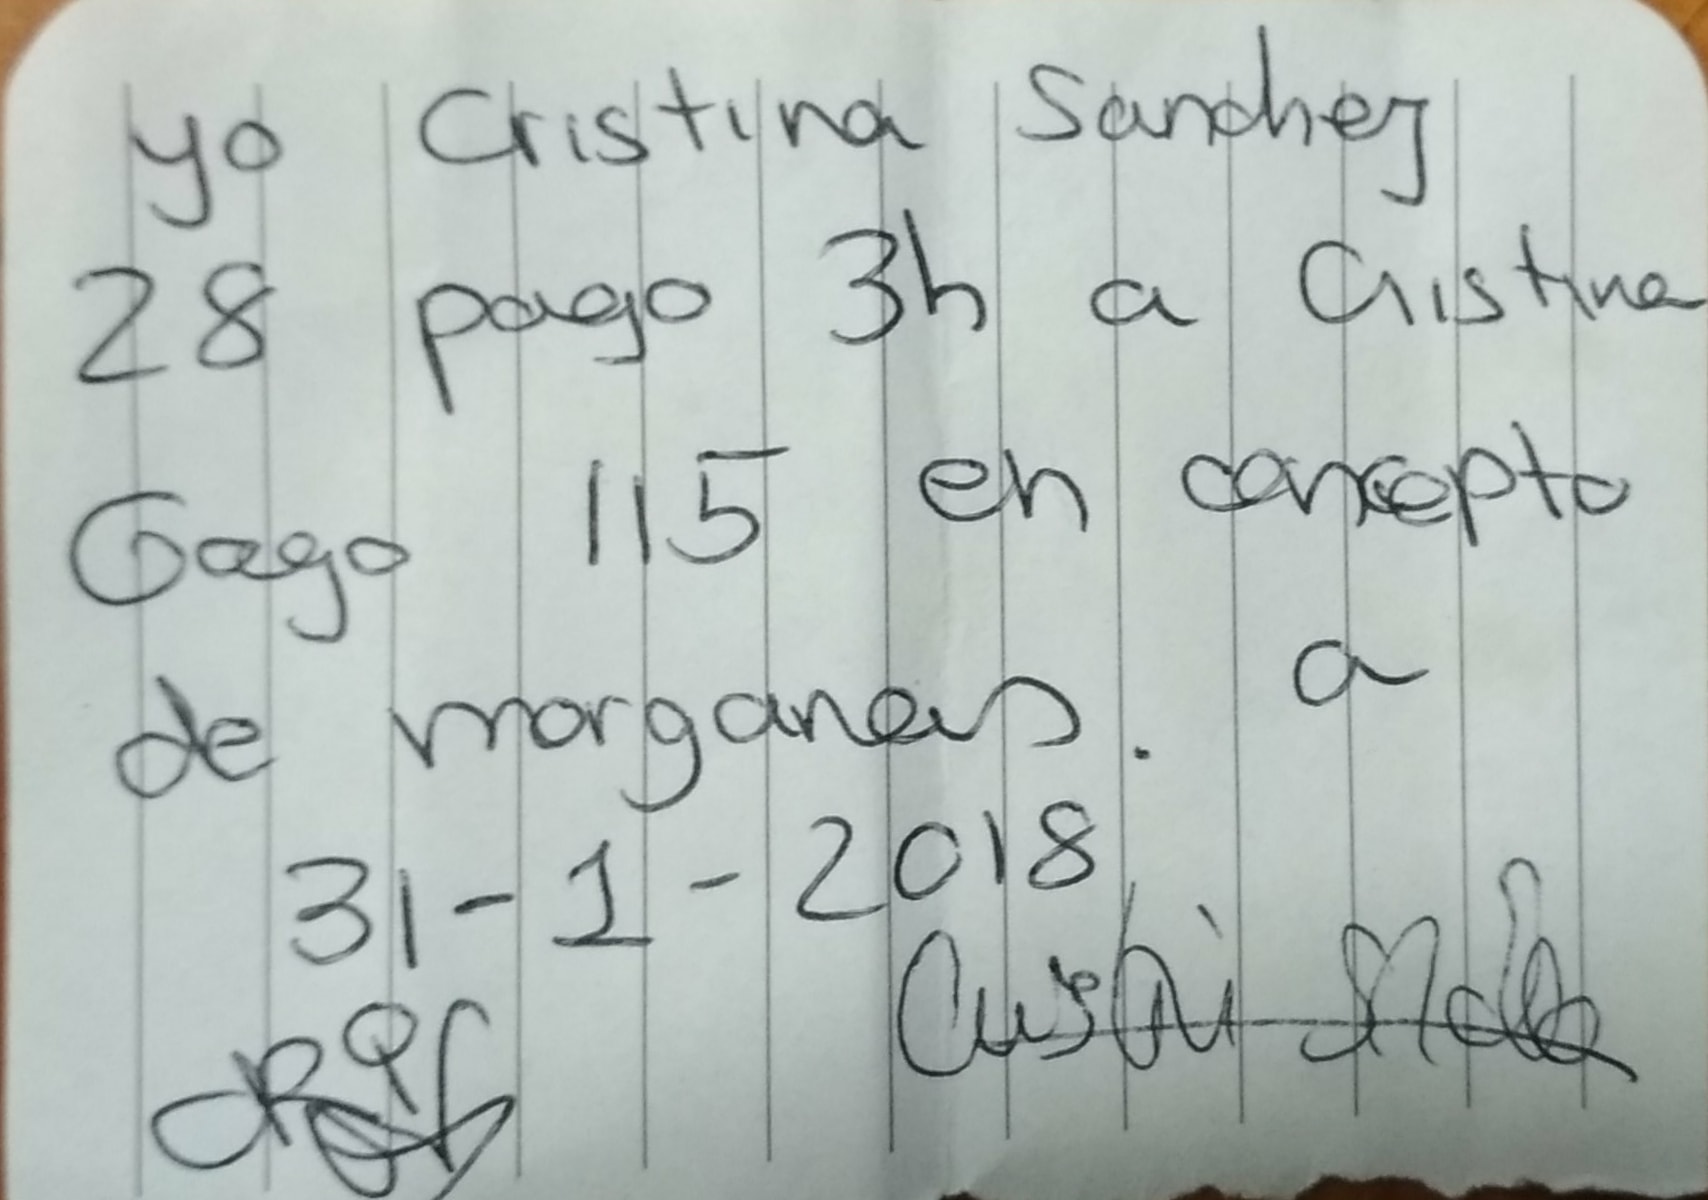 yo Cristina Sanchez
28 pago 3h a Cristina
Gago 115 en concepto
de morganans. a
31-1-2018